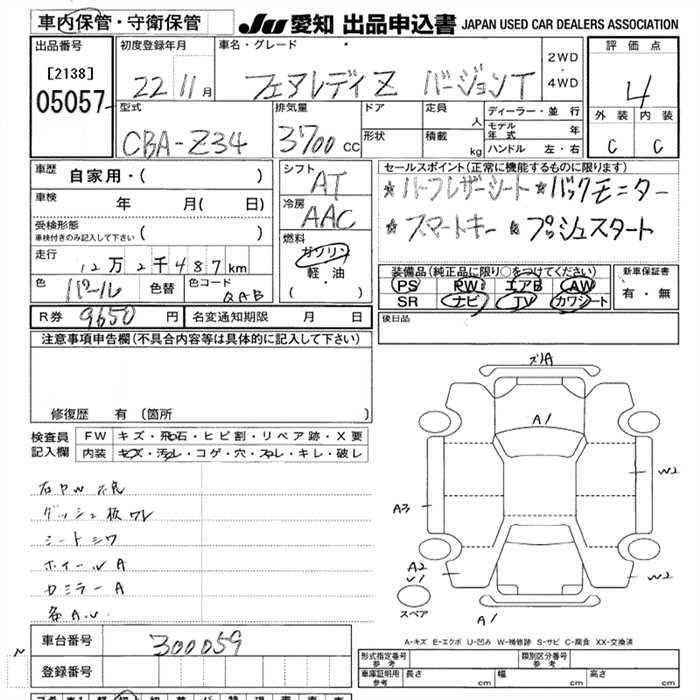 車内保管・守衛保管
JU 愛知 出品申込書 JAPAN USED CAR DEALERS ASSOCIATION
出品番号
[2138]
05057
初度登録年月
22 11月
車名・グレード
フェアレディZ バージョンT
2WD
・
4WD
評価点
4
外装 内装
C C
型式
CBA-Z34
排気量
3700 cc
ドア
形状
定員
人
積載
kg
ディーラー・並行
モデル年式 年
ハンドル 左・右
車歴 自家用・( )
車検 年 月( 日)
受検形態
車検付きのみ記入して下さい ( )
走行 12万2千487km
色 パール 色替 色コード QAB
R券 9650 円 名変通知期限 月 日
シフト
AT
冷房
AAC
燃料
ガソリン
軽・油
( ・ )
セールスポイント(正常に機能するものに限ります)
☆ハーフレザーシート ☆バックモニター
☆スマートキー ☆プッシュスタート
装備品(純正品に限り○をつけてください)
PS PW エアB AW
SR ナビ TV カワシート
新車保証書
有・無
後日品
注意事項申告欄(不具合内容等は具体的に記入して下さい)
修復歴 有(箇所 )
検査員
記入欄
FW キズ・飛石・ヒビ割・リペア跡・X要
内装 キズ・汚レ・コゲ・穴・スレ・キレ・破レ
右PW不良
ダッシュ板ワレ
シートシワ
ホイールA
カミラーA
各A.U
ズレA
A1
A3
W2
A2
U1
W2
A1
スペア
A-キズ E-エクボ U-凹み W-補修跡 S-サビ C-腐食 XX-交換済
車台番号 300059
登録番号
型式指定番号
参考
類別区分番号
参考
車庫証明用
参考
長さ cm 幅 cm 高さ cm